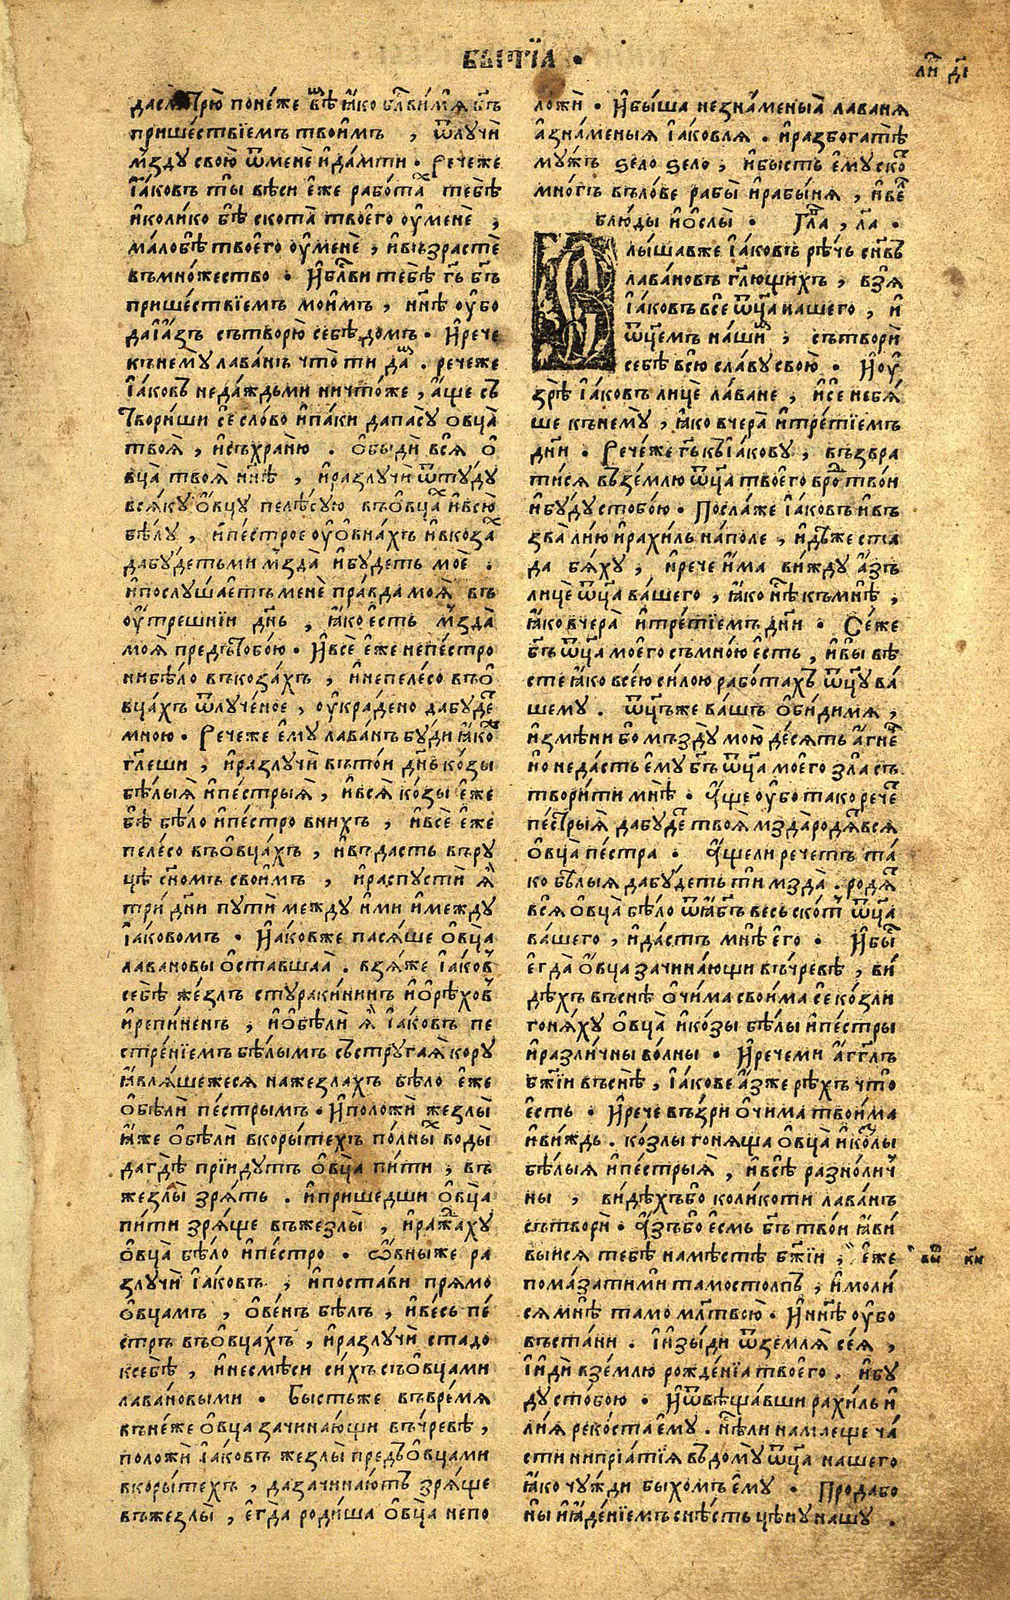 БЫТЇА ·
ли́ ді
пришествїемъ твои́мъ , ѿлучѝ
мзду свою̀ ѿменѐ и҆дамти . Речеже
І҆аковъ ты̀ вѣси є҆же работа́ тебѣ
и҆колико бѣ скота̀ твоего оу҆менѐ ,
малобѣ твоего оу҆менѐ , и҆възрастѐ
въмножество . И҆бл҃ви тебѣ̀ гь҃ бг҃ъ
пришествїемъ моимъ , нн҃ѣ оу҆бо
даи҆азъ сътворю̀ себѣ̀ домъ . И҆рече
кънему лаванъ что̀ ти да́ . речеже
І҆аковъ недаждьми ничтоже , а҆ще съ
твориши се слово и҆паки дапасу̀ овца̀
твоя̀ , и҆съхраню̀ . о҆быдѝ вся̀ о҆
вца̀ твоя̀ нн҃ѣ , и҆разлучѝ ѿтуду
всяку о҆вцу пелѣсую въо҆вца и҆всю̀
бѣлу , и҆пестрое оу҆о҆внахъ и҆вкоза
дабудетьми мзда̀ и҆будеть моѐ .
и҆послушаетъ менѐ правда моя̀ въ
оу҆трешнїи дн҃ь , ꙗ҆ко есть мзда̀
моя̀ предъ тобою . И҆всѐ є҆же непестро
нибѣло въкозахъ , и҆непелесо въо҆
вцахъ ѿлученое , оу҆крадено дабуде
мною . Речеже є҆му лаванъ буди ꙗ҆ко
гл҃еши , и҆разлучѝ вътои дн҃ь козы
бѣлыя и҆пестрыя , и҆вся̀ козы є҆же
бѣ бѣло и҆пестро вних , и҆всѐ є҆же
пелесо въо҆вцахъ , и҆въдасть въру
цѣ сн҃омъ своимъ , и҆распустѝ я҆
трѝ дн҃и пути между и҆ми и҆между
І҆аковомъ . И҆аковже пасяше о҆вца̀
лавановы о҆ставшаа . взяже І҆аков
себѣ̀ жезлъ стуракининъ и҆о҆рѣхов
и҆репиненъ , и҆о҆белѝ я҆ І҆аковъ пе
стренїемъ бѣлымъ състругая кору
ꙗ҆вляшежеся нажезлахъ бѣло є҆же
о҆белѝ пестрымъ . И҆положѝ жезлы̀
ꙗ҆же о҆белѝ вкорытехъ полны воды̀
дагдѣ̀ прїидутъ о҆вца̀ пити , въ
жезлы̀ зрятъ . и҆пришедши о҆вца̀
пити зряще въжезлы̀ , и҆ражаху
о҆вца̀ бѣло и҆пестро . о҆вныже ра
злучѝ І҆аковъ , и҆постави прямо
о҆вцамъ , о҆венъ бѣлъ , и҆весь пе
стръ въо҆вцахъ , и҆разлучѝ стадо
ксебѣ , и҆несмѣси сихъ съо҆вцами
лавановыми . Бысть же въвремя
вънеже о҆вца зачинающи въчревѣ ,
положѝ І҆аковъ жезлы̀ предъо҆вцами
вкорытехъ , дазачинаютъ зряще
въжезлы̀ , є҆гда родиша о҆вца̀ непо
ложѝ . И҆быша незнаменыя лаваня
а҆знаменыя І҆аковля . и҆разбогатѣ
мужъ ѕело ѕело , и҆бысть є҆му ско
многъ въловѣ рабы̀ и҆рабыня , и҆ве
блюды и҆о҆слы̀ . Гла , ла .
лышавже І҆аковъ рѣчь сн҃въ
лавановъ гл҃ющихъ , взя̀
І҆аковъ все ѿц҃а нашего , и҆
ѿц҃емъ наши , сътворѝ
себѣ̀ всю̀ славу свою̀ . И҆оу҆
зрѣ̀ І҆аковъ лицѐ лаване , и҆се небя
ше кънему , ꙗ҆ко вчера̀ и҆третїемъ
дн҃и . Речеже гь҃ къІ҆акову , възвра
тися въземлю ѿц҃а твоего вро твои
и҆буду стобою . Послаже І҆аковъ и҆въ
зва лию и҆рахиль наполе , и҆дѣже ста
да бяху , и҆рече и҆ма вижду а҆зъ
лицѐ ѿц҃а вашего , ꙗ҆ко нѣ къмнѣ ,
ꙗ҆ко вчера̀ и҆третїемъ дн҃и . Сеже
бг҃ъ ѿц҃а моего съмною є҆сть , и҆вы вѣ
сте ꙗ҆ко всею силою работахъ ѿц҃у ва
шему . ѿц҃ъже вашъ о҆бидимя ,
и҆змѣни бо мъзду̀ мою̀ десять а҆гне
и҆о недасть є҆му бг҃ъ ѿц҃а моего зла̀ съ
творити мнѣ̀ . А҆ще оу҆бо тако рече
пестрыя дабуде твоя мзда родя вся
о҆вца̀ пестра . А҆щели речетъ та
ко бѣлыя дабудеть ти мзда̀ . родя
вся̀ о҆вца̀ бѣло ѿꙗ҆бг҃ъ весь скот ѿц҃а
вашего , и҆дастъ мнѣ̀ его . И҆бы
егда̀ о҆вца зачинающи въчревѣ , ви
дѣхъ въснѣ̀ о҆чима своима се козли
гоняху о҆вца̀ и҆козы бѣлы и҆пестры
и҆различны волны . И҆речеми а҆гг҃лъ
бж҃їи въснѣ̀ , І҆акове а҆зже рѣхъ что̀
есть . И҆рече възри о҆чима твоима
и҆виждь . козлы гоняща о҆вца̀ и҆козлы
бѣлыя и҆пестрыя , и҆всѣ разнолич
ны , видѣхъбо коликоти лаванъ
сътворѝ . А҆зъбо есмь бг҃ъ твои ꙗ҆ви
выися тебѣ намѣстѣ бж҃їи , є҆же
помазатими тамостолпъ , и҆моли
ся мнѣ̀ тамо млт҃всю . И҆нн҃ѣ оу҆бо
въстани . І҆изыди ѿземля сея ,
І҆идѝ вземлю рожденїа твоего . и҆бу
ду стобою . И҆ѿвѣщавши рахиль и҆
лия рекоста ему . И҆ѣли нам еще ча
сти ниприатїя въдому ѿц҃а нашего
ꙗ҆ко чужди быхомъ ему . Продабо
ны и҆ꙗ҆денїемъ снѣсть цѣну нашу .